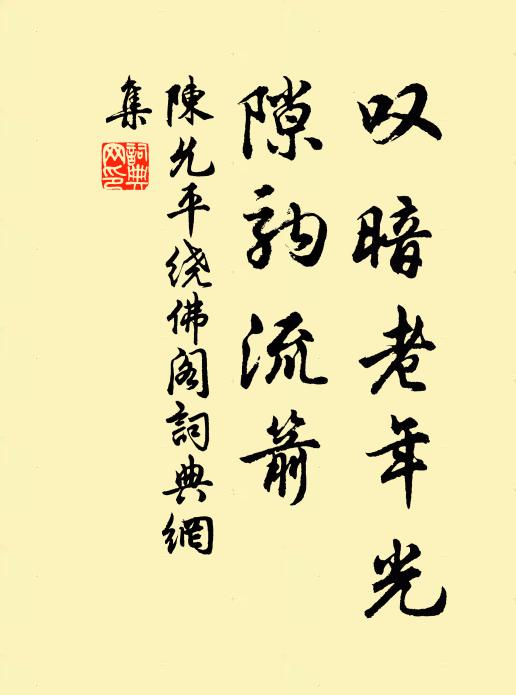 叹暗老年光
隙驹流箭
陳允平绕佛阁詞典網
集
詞典网印